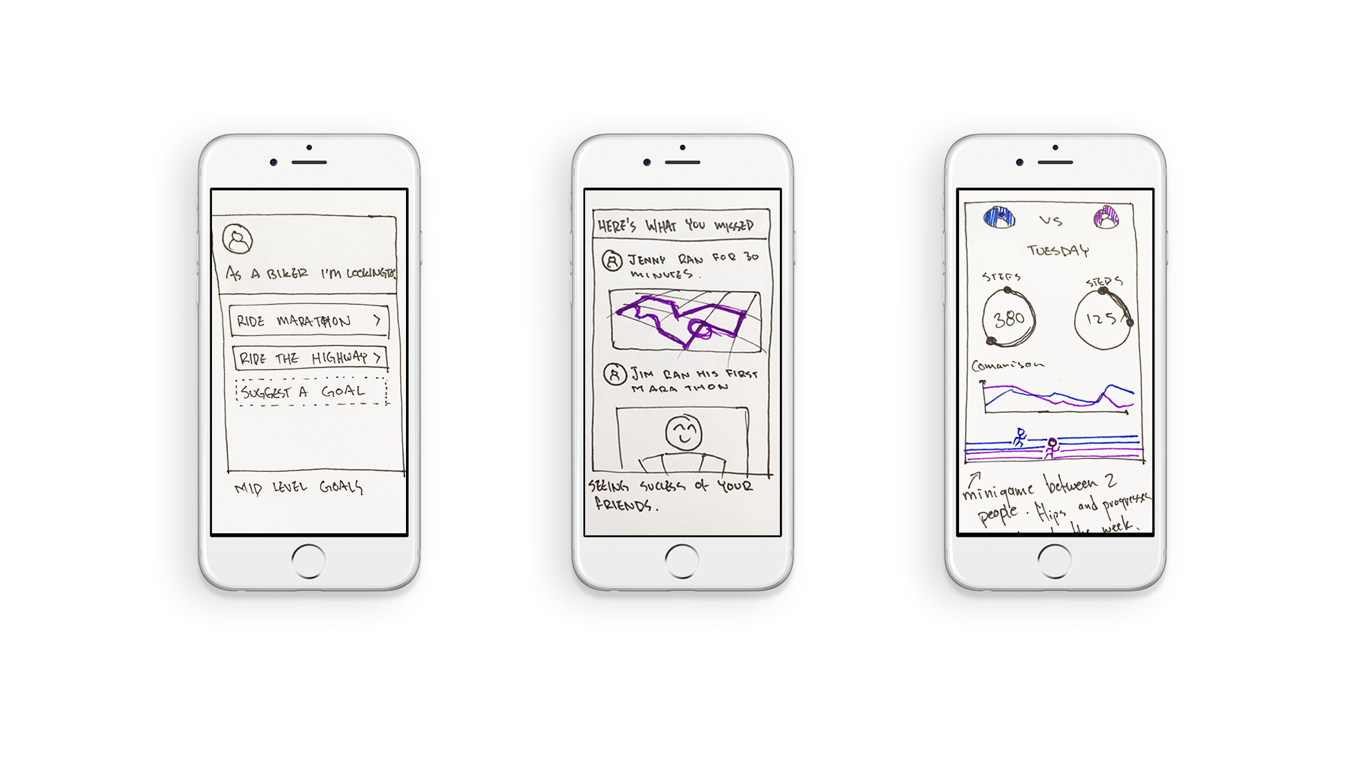 AS A BIKER I'M LOOKING TO
RIDE MARATHON >
RIDE THE HIGHWAY >
SUGGEST A GOAL
MID LEVEL GOALS
HERE'S WHAT YOU MISSED
JENNY RAN FOR 30
MINUTES.
JIM RAN HIS FIRST
MARATHON
SEEING SUCCESS OF YOUR
FRIENDS.
VS
TUESDAY
STEPS STEPS
380 125
Comarison
minigame between 2
people. Flips and progresses
the week.